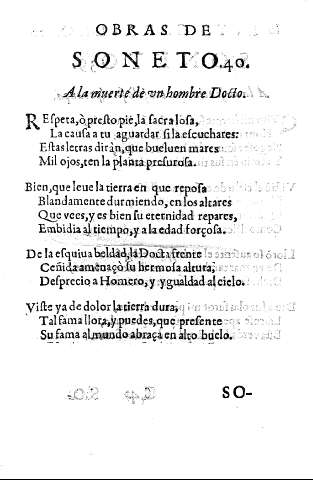 OBRAS DE
SONETO.40.
A la muerte de vn hombre Docto.
REspeta, ò presto pie, la sacra losa,
La causa a tu aguardar si la escuchares:
Estas letras diràn, que bueluen mares
Mil ojos, ten la planta presurosa.
Bien, que leue la tierra en que reposa
Blandamente durmiendo, en los altares
Que vees, y es bien su eternidad repares,
Embidia al tiempo, y a la edad forçosa.
De la esquiua beldad, la Docta frente
Ceñida amenaçò su hermosa altura,
Desprecio a Homero, y ygualdad al cielo.
Viste ya de dolor la tierra dura,
Tal fama llora, y puedes, que presente
Su fama al mundo abraça en alto buelo.
SO-